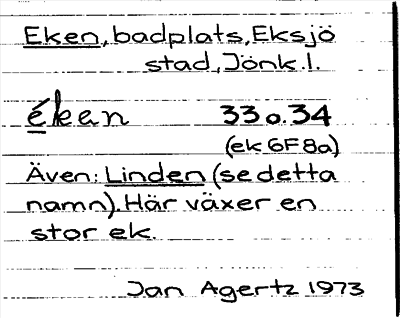 Eken, badplats, Eksjö
stad, Jönk. l.
éken 33 o. 34
(ek 6F8a)
Även: Linden (se detta
namn). Här växer en
stor ek.
Jan Agertz 1973